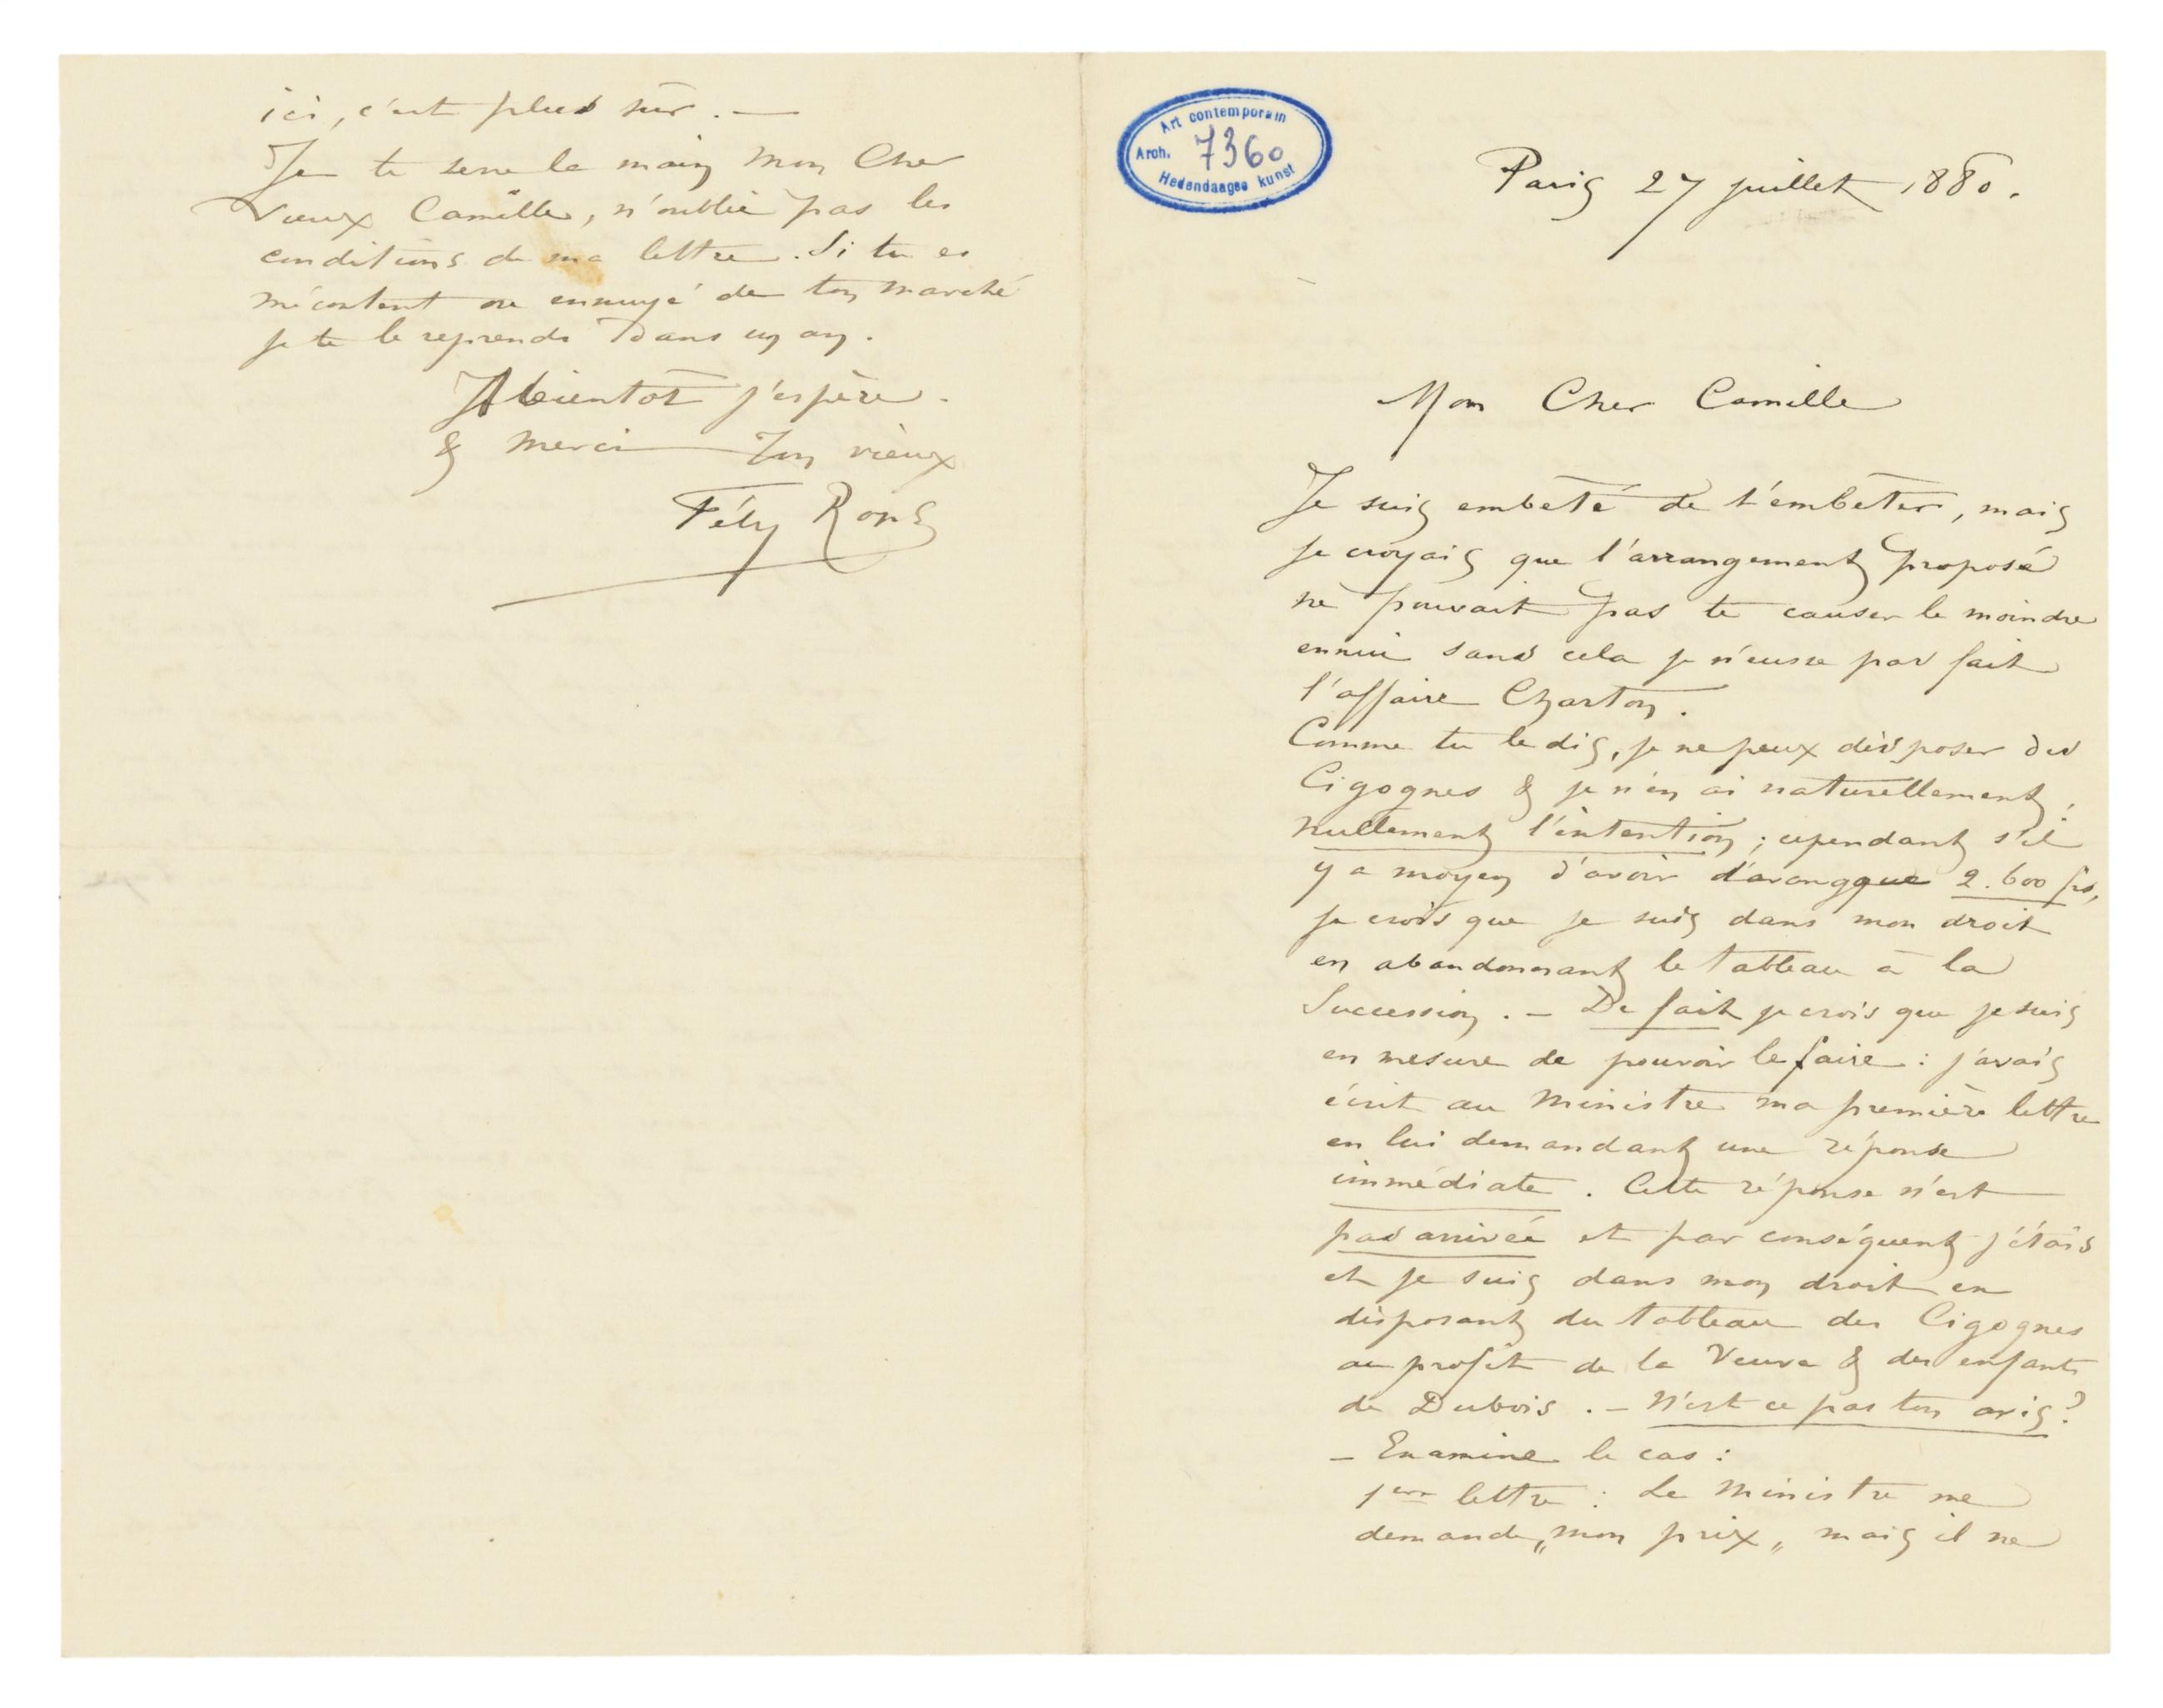 Art contemporain
Arch. 7360
Hedendaagse kunst
Paris 27 juillet 1880.
Mon Cher Camille
Je suis embêté de t'embêter, mais
je croyais que l'arrangement proposé
ne pouvait pas te causer le moindre
ennui sans cela je n'eusse pas fait
l'affaire Charton.
Comme tu le dis, je ne peux disposer des
Cigognes & je n'en ai naturellement,
nullement l'intention ; cependant s'il
y a moyen d'avoir d'avantage que 2.600 frs,
je crois que je suis dans mon droit
en abandonnant le tableau à la
Succession . – De fait je crois que je suis
en mesure de pouvoir le faire : j'avais
écrit au Ministre ma première lettre
en lui demandant une réponse
immédiate . Cette réponse n'est
pas arrivée et par conséquent j'étais
et je suis dans mon droit en
disposant du tableau des Cigognes
au profit de la Veuve & des enfants
de Dubois . – N'est ce pas ton avis ?
– Examine le cas :
1ère lettre : Le Ministre me
demande „mon prix„ mais il ne
ici, c'est plus sûr . —
Je te serre la main mon Cher
Vieux Camille, n'oublie pas les
conditions de ma lettre . Si tu es
mécontent ou ennuyé de ton marché
je te le reprends dans un an .
A bientôt j'espère .
& merci Ton vieux
Fély Rops